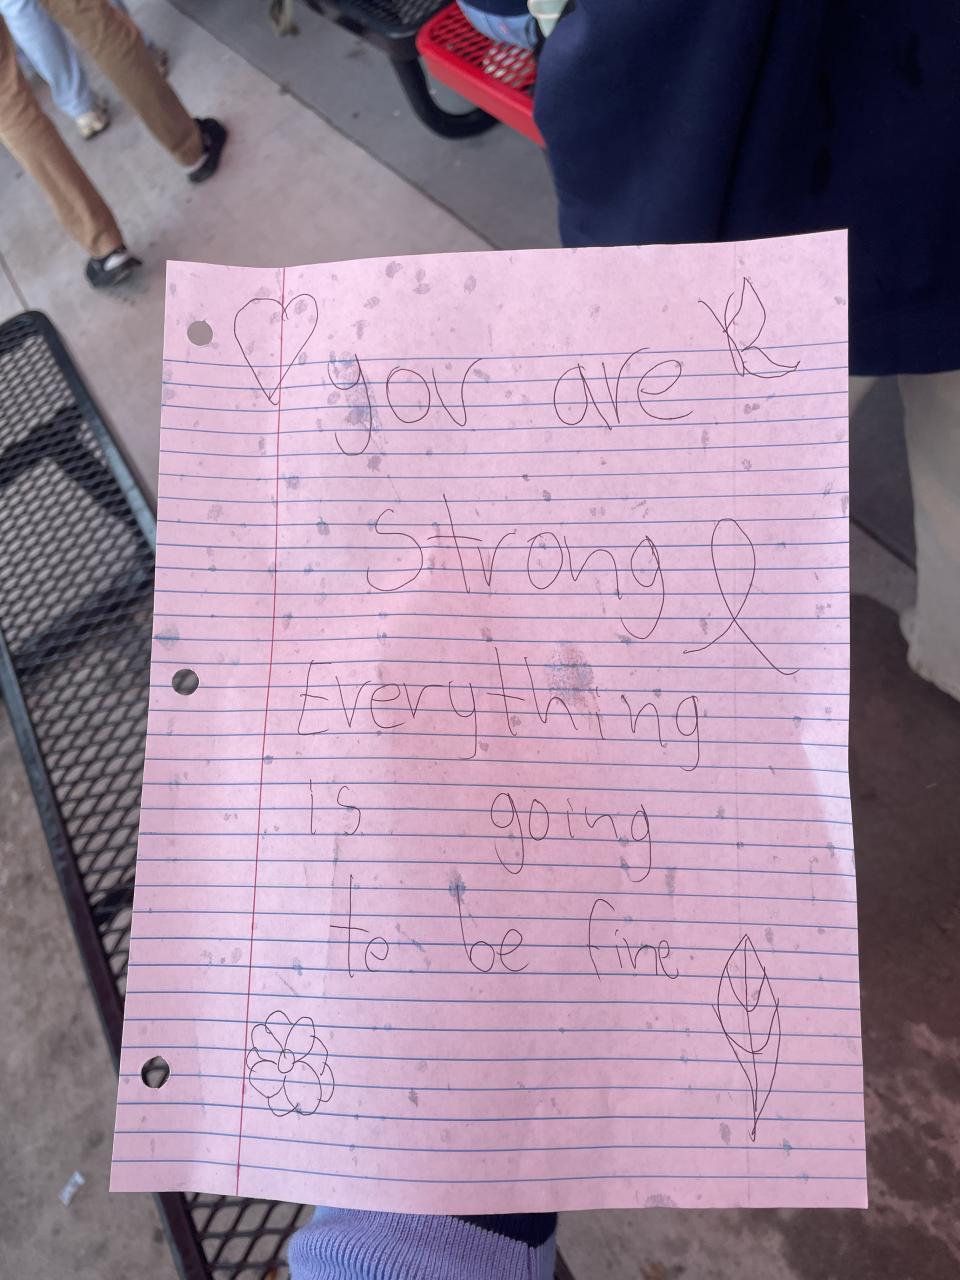 you are
Strong
Everything
is going
to be fine